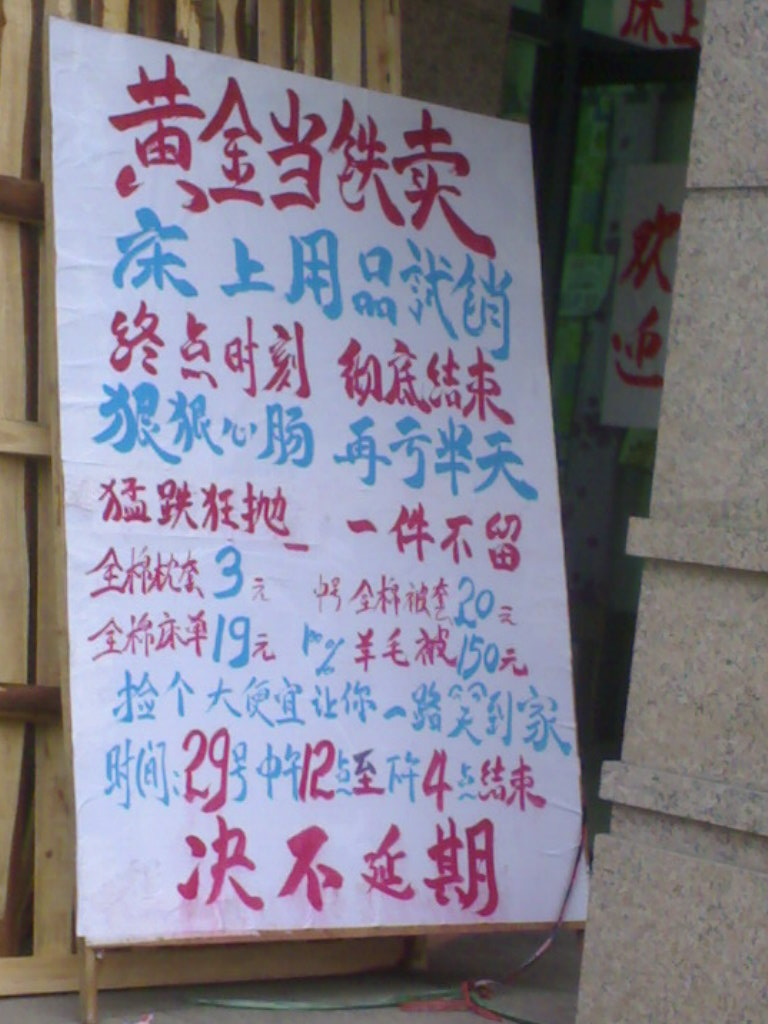 黄金当铁卖
床上用品試销
终点时刻 彻底结束
狠狠心肠 再亏半天
猛跌狂抛 一件不留
全棉枕套3元 中号全棉被套20元
全棉床单19元 10%羊毛被150元
捡个大便宜让你一路笑到家
时间:29号中午12点至下午4点结束
决不延期
床上
欢迎